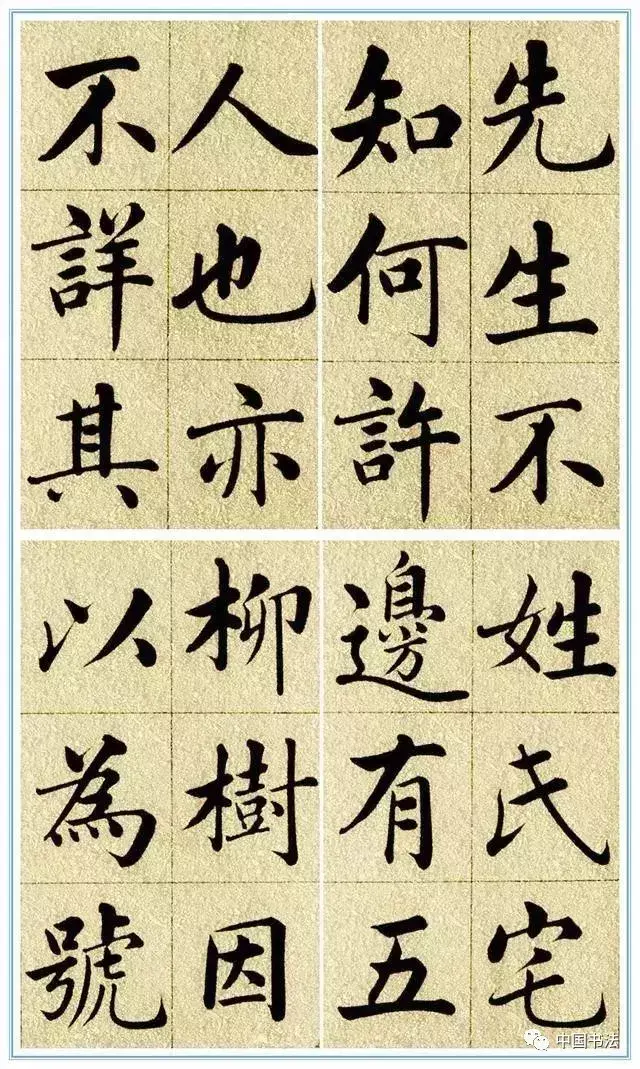 先生不
知何許
人也亦
不詳其
姓氏宅
邊有五
柳樹因
以為號
中国书法